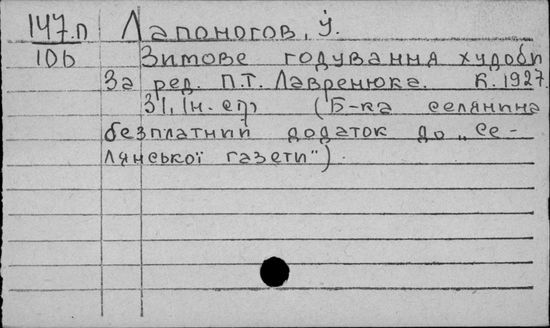 147.п Лапоногов, Й.
106 Зимове годування худоби
За ред. П.Т. Лавренюка. К. 1927.
31, Ін. ст (Б-ка селянина
безплатний додаток до „Се-
лянської газети").